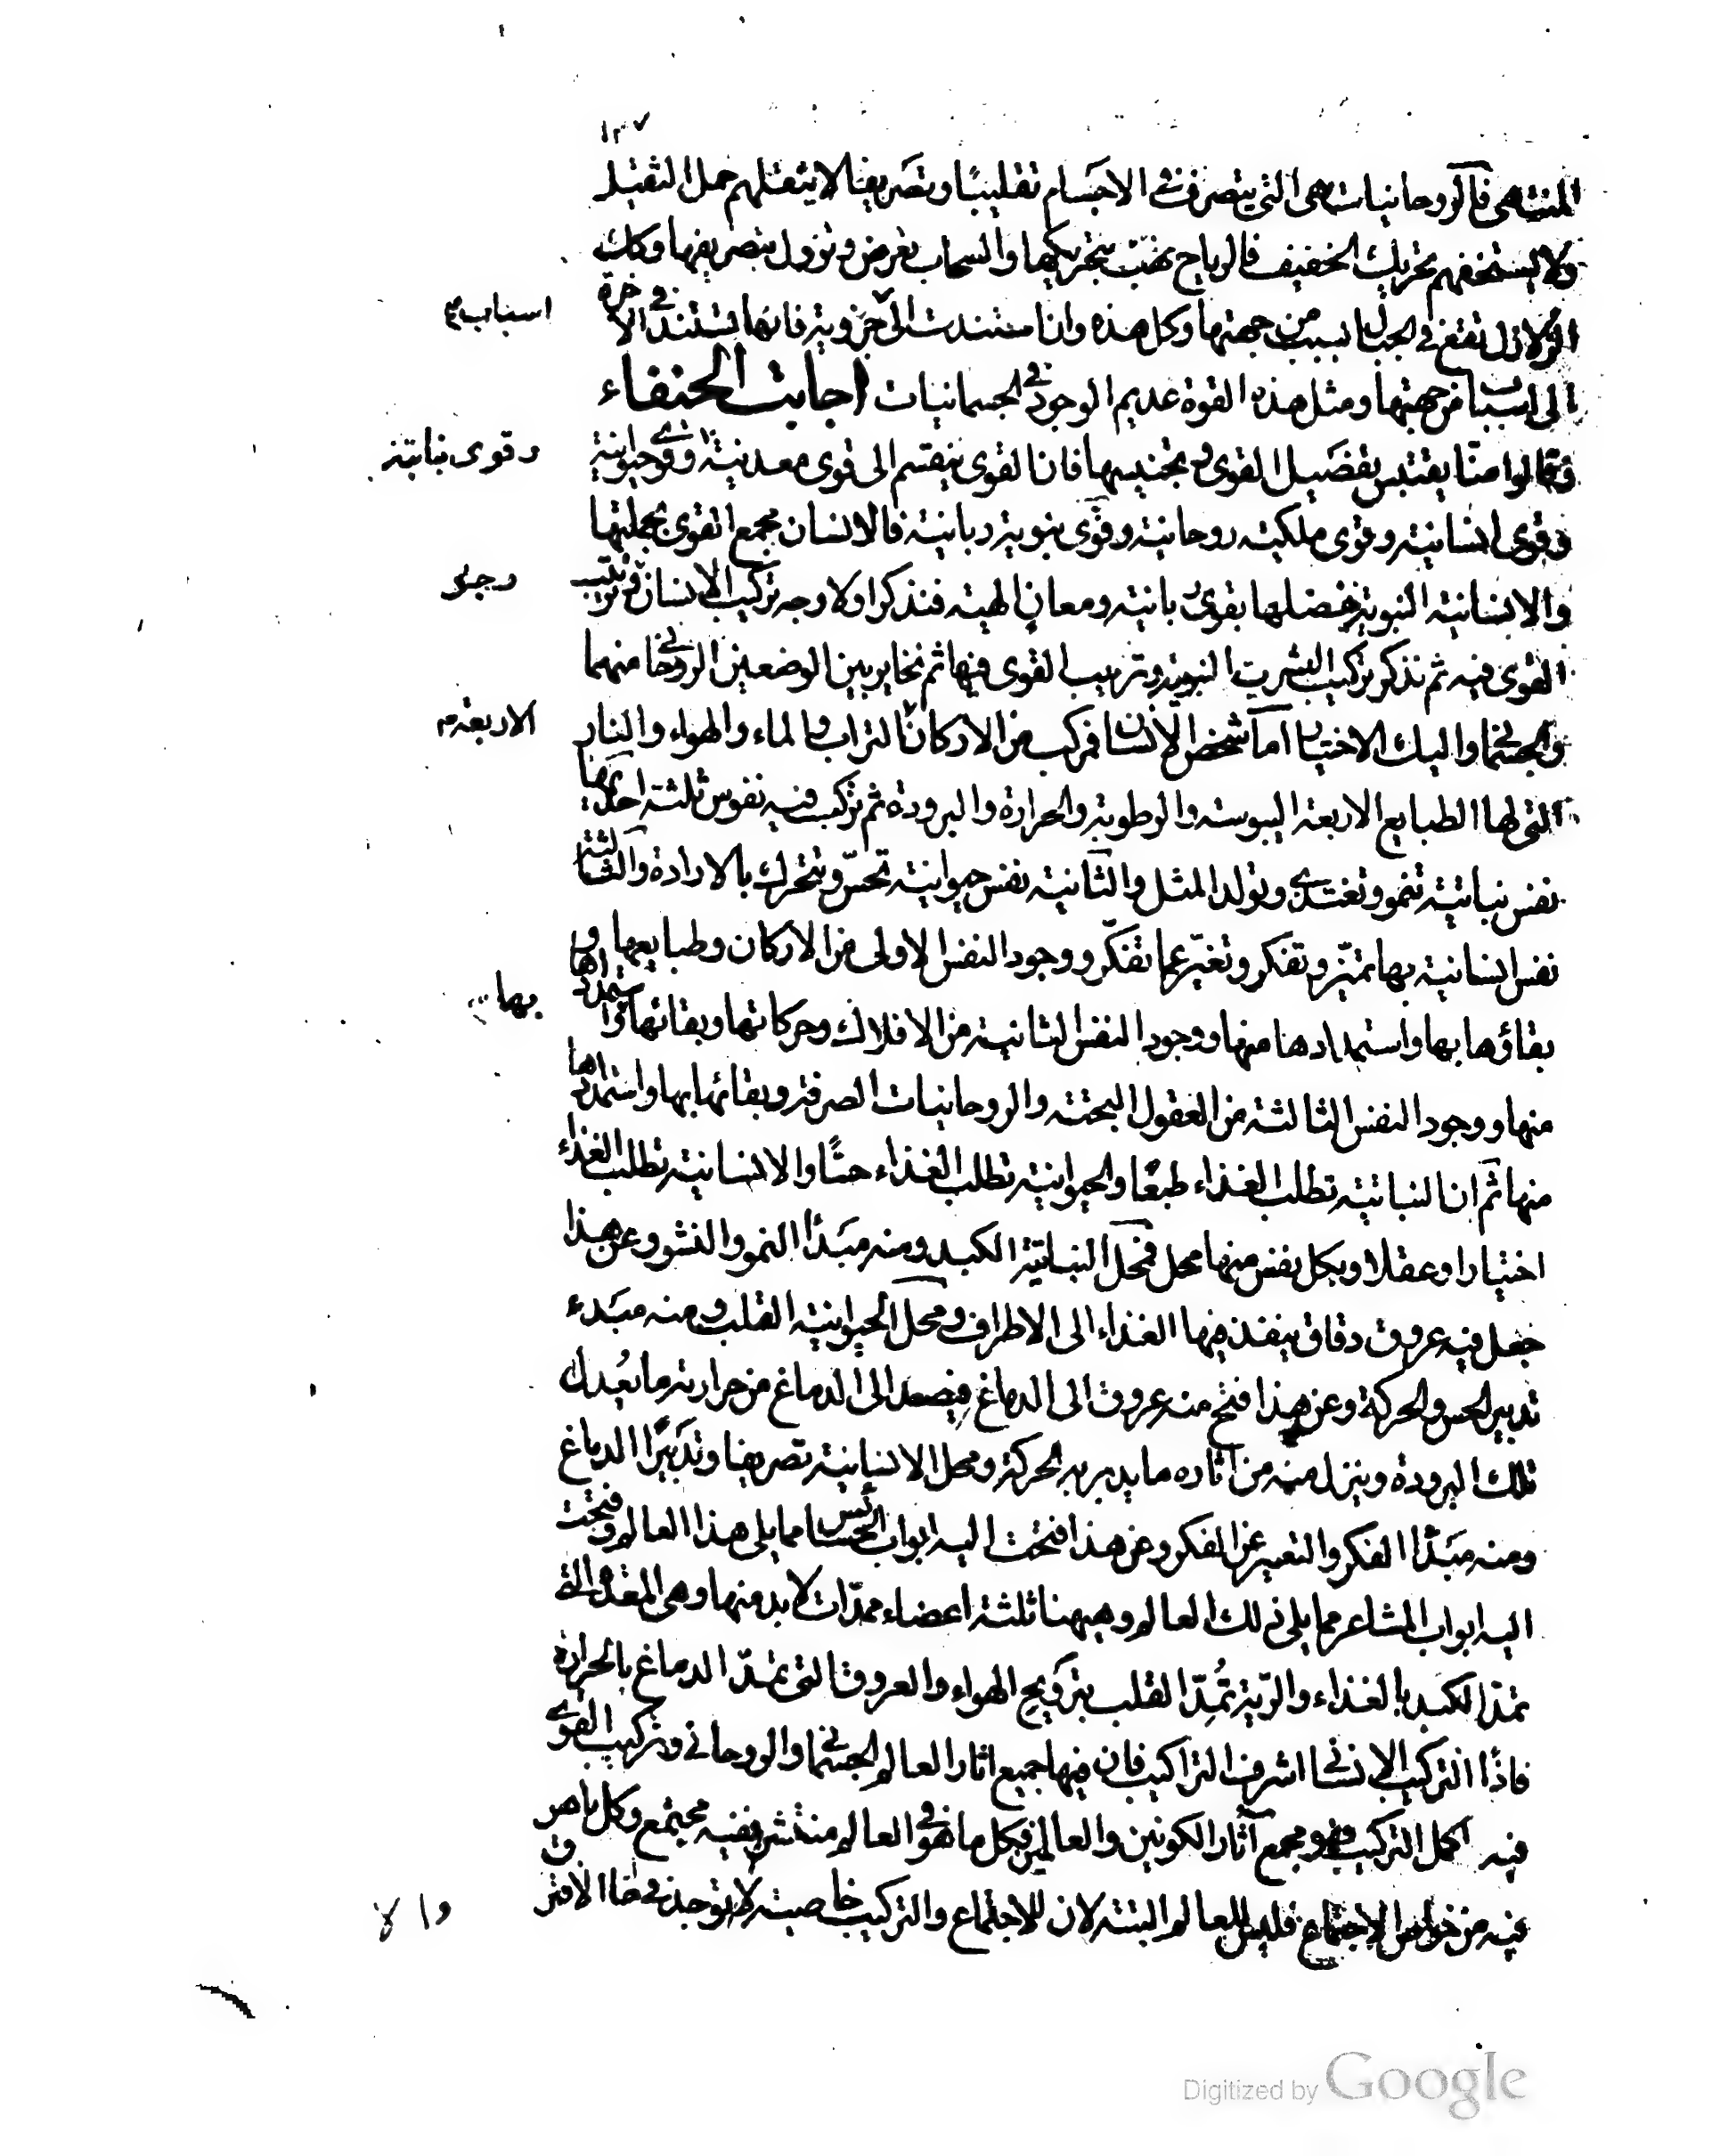 ١٣٧
المنتهى فالروحانيات هى التى يتصرف فى الاجسام تقليبًا وتصريفا لا يثقلهم حمل الثقيل
ولا يستخفهم تحريك الخفيف فالرياح تهبّ بتحريكها والسحاب تعرض وتزول بتصريفها وكذلك
الزلازل تقع فى الجبال بسبب من جهتها وكل هذه وان استندت الى جزوية فانها تستند فى الاخرة
اسباب
الى اسباب من جهتها ومثل هذه القوة عديم الوجود فى الجسمانيات اجابت الحنفاء
وقالوا منّا يقتبس تفضيل القوى وتجنيسها فان القوى ينقسم الى قوى معدنية وقوى حيوانية
وقوى نباتية
وقوى انسانية وقوى ملكية روحانية وقوى نبوية ربانية فالانسان مجمع القوى بجملتها
والانسانية النبوية تفضلها بقوى ربانية ومعان الهية فنذكر اولا وجه تركيب الانسان وترتيب
القوى فيه ثم نذكر تركيب البشرية النبوية وترتيب القوى فيها ثم نخاير بين الوضعين الروحانى منهما
والجسمانى واليك الاختيار اما شخص الانسان فمركب من الاركان التراب والماء والهواء والنار
الاربعة
التى لها الطبايع الاربعة اليبوسة والرطوبة والحرارة والبرودة ثم تركب فيه نفوس ثلثة احديها
نفس نباتية تنمو وتغتذى وتولد المثل والثانية نفس حيوانية تحسّ وتتحرك بالارادة والثالثة
نفس انسانية بها تميّز وتفكر وتعبّر عما تفكّر ووجود النفس الاولى من الاركان وطبايعها و
بقاؤها بها واستمدادها منها ووجود النفس الثانية من الافلاك وحركاتها وبقائها واستمدادها
بها
منها ووجود النفس الثالثة من العقول البحتة والروحانيات الصرفة وبقائها بها واستمدادها
منها ثم ان النباتية تطلب الغذاء طبعًا والحيوانية تطلب الغذاء حسًا والانسانية تطلب الغذاء
اختيارا وعقلا ولكل نفس منها محل فمحل النباتية الكبد ومنه مبدأ النمو والنشو وعن هذا
جعل فيه عروق دقاق ينفذ فيها الغذاء الى الاطراف ومحل الحيوانية القلب ومنه مبدء
تدبير الحس والحركة وعن هذا فتح منه عروق الى الدماغ فيصعد الى الدماغ من حرارته ما يعدل
تلك البرودة وينزل منه من آثاره ما يدبر به الحركة ومحل الانسانية تصريفا وتدبيرًا الدماغ
ومنه مبدأ الفكر والتعبير عن الفكر وعن هذا فتحت اليه ابواب الحسائس مما يلى هذا العالم وفتحت
اليه ابواب المشاعر مما يلى ذلك العالم وهيهنا ثلثة اعضاء ممدّات لا بد منها وهى المعدة التى
تمدّ الكبد بالغذاء والرّية تُمِدّ القلب بترويح الهواء والعروق التى تمدّ الدماغ بالحرارة
فاذًا التركيب الانسانى اشرف التراكيب فان فيها جميع اثار العالم الجسمانى والروحانى وتركيب القوى
فيه اكمل التركيب وهو مجمع آثار الكونين والعالمين فكل ما هو فى العالم منتشر ففيه مجتمع وكل ما هو
فيه من خواص الاجتماع فليس للعالم البتة لان للاجتماع والتركيب خاصية لا توجد فى حال الافتراق
والا
Digitized by Google